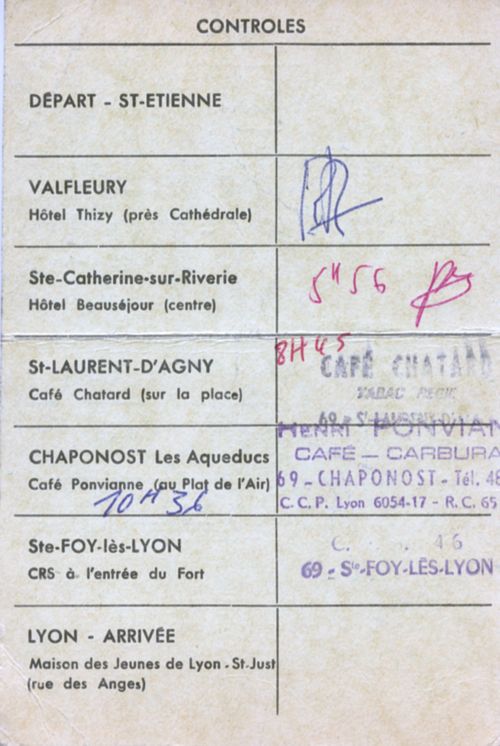 CONTROLES
DÉPART - ST-ETIENNE
VALFLEURY
Hôtel Thizy (près Cathédrale)
Ste-Catherine-sur-Riverie
Hôtel Beauséjour (centre)
5H56
St-LAURENT-D'AGNY
Café Chatard (sur la place)
8H45
CAFÉ CHATARD
TABAC REGIE
69 - St-LAURENT-D'
CHAPONOST Les Aqueducs
Café Ponvianne (au Plat de l'Air)
10H36
HENRI PONVIAN
CAFÉ - CARBURA
69 - CHAPONOST - Tél. 48
C. C. P. Lyon 6054-17 - R. C. 65
Ste-FOY-lès-LYON
CRS à l'entrée du Fort
C. 46
69 - Ste-FOY-LÈS-LYON
LYON - ARRIVÉE
Maison des Jeunes de Lyon - St-Just
(rue des Anges)